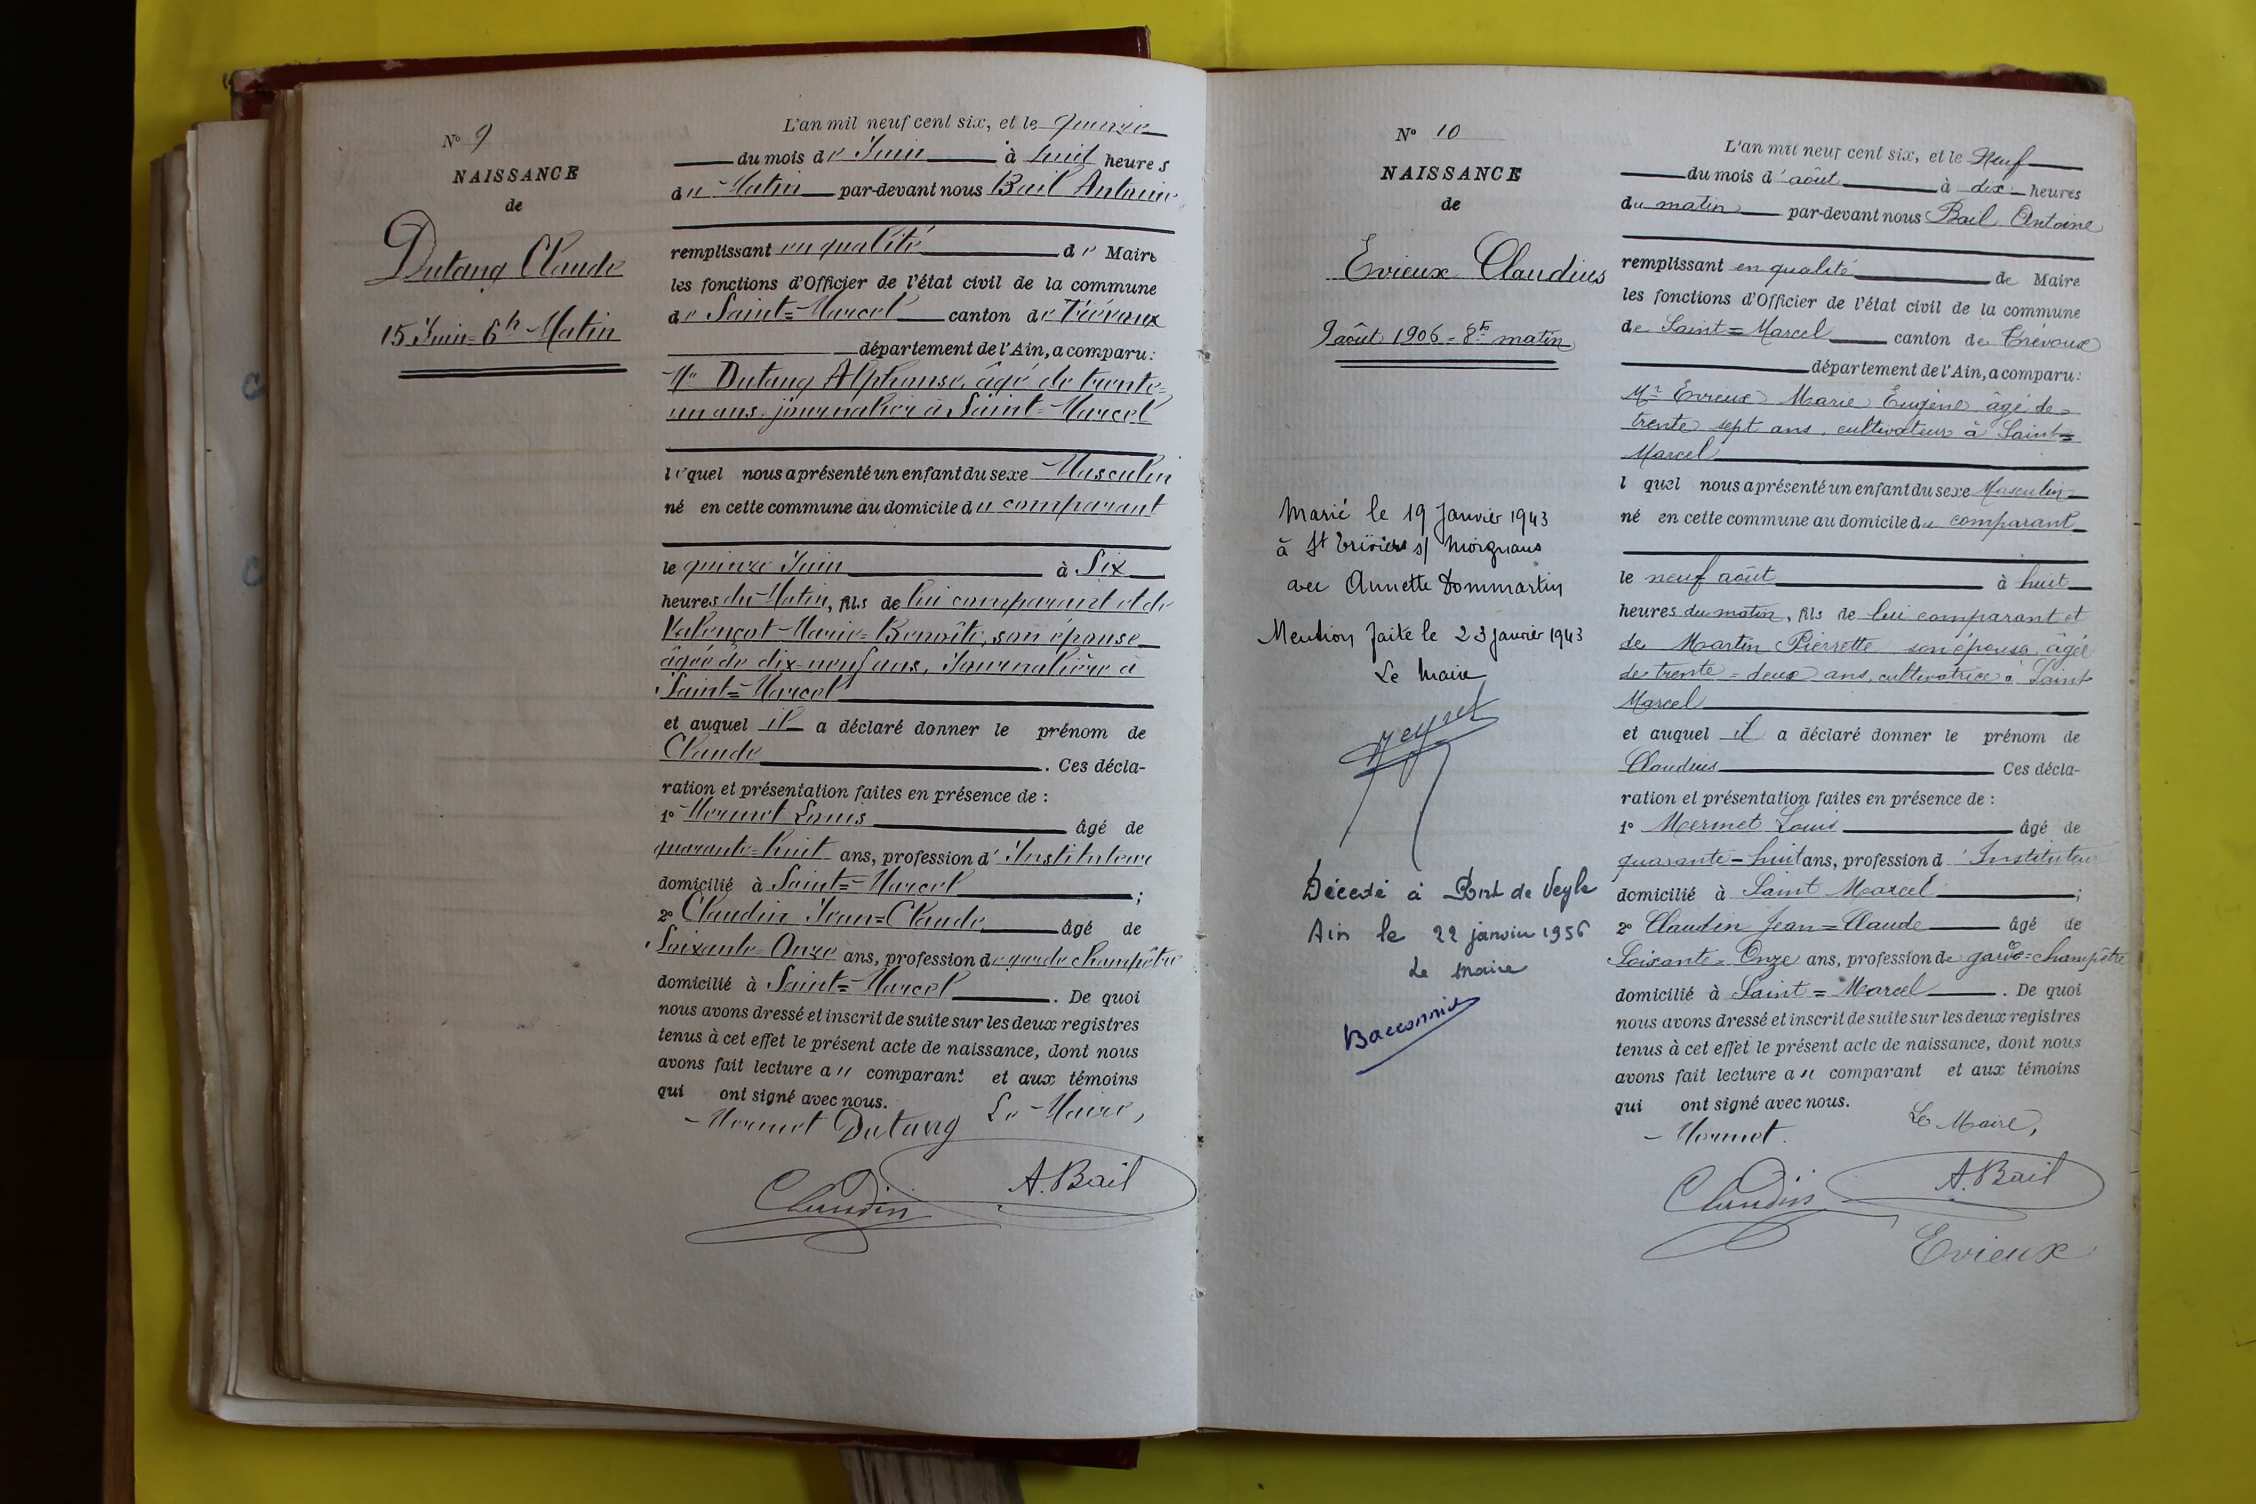 N° 9
NAISSANCE
de
Dutang Claude
15 Juin = 6h Matin
L'an mil neuf cent six, et le quinze
du mois de Juin à huit heures
du Matin par-devant nous Bail Antoine
remplissant en qualité de Maire
les fonctions d'Officier de l'état civil de la commune
de Saint=Marcel canton de Trévoux
département de l'Ain, a comparu:
Mr Dutang Alphonse, âgé de trente=
un ans, journalier à Saint=Marcel
lequel nous a présenté un enfant du sexe Masculin
né en cette commune au domicile du comparant
le quinze Juin à Six
heures du Matin, fils de lui comparant et de
Valençot Marie=Benoîte, son épouse
âgée de dix-neuf ans, Journalière à
Saint=Marcel
et auquel il a déclaré donner le prénom de
Claude. Ces décla-
ration et présentation faites en présence de :
1° Mermet Louis âgé de
quarante=huit ans, profession d'Instituteur
domicilié à Saint=Marcel ;
2° Claudin Jean=Claude âgé de
Soixante=Onze ans, profession de garde champêtre
domicilié à Saint=Marcel. De quoi
nous avons dressé et inscrit de suite sur les deux registres
tenus à cet effet le présent acte de naissance, dont nous
avons fait lecture au comparant et aux témoins
qui ont signé avec nous.
Mermet Dutang Le Maire,
Claudin A. Bail
N° 10
NAISSANCE
de
Evieux Claudius
9 août 1906 = 8h matin
Marié le 19 Janvier 1943
à St Trivier s/ Moignans
avec Annette Dommartin
Mention faite le 23 janvier 1943
Le Maire
Décédé à Pont de Veyle
Ain le 22 janvier 1956
Le Maire
L'an mil neuf cent six, et le Neuf
du mois d'août à dix heures
du matin par-devant nous Bail Antoine
remplissant en qualité de Maire
les fonctions d'Officier de l'état civil de la commune
de Saint=Marcel canton de Trévoux
département de l'Ain, a comparu:
Mr Evieux Marie Eugène âgé de
trente sept ans, cultivateur à Saint=
Marcel
l quel nous a présenté un enfant du sexe Masculin
né en cette commune au domicile du comparant
le neuf août à huit
heures du matin, fils de lui comparant et
de Martin Pierrette son épouse âgée
de trente=deux ans, cultivatrice à Saint
Marcel
et auquel il a déclaré donner le prénom de
Claudius Ces décla-
ration et présentation faites en présence de :
1° Mermet Louis âgé de
quarante=huit ans, profession d'Instituteur
domicilié à Saint Marcel ;
2° Claudin Jean=Claude âgé de
Soixante=Onze ans, profession de garde=champêtre
domicilié à Saint=Marcel. De quoi
nous avons dressé et inscrit de suite sur les deux registres
tenus à cet effet le présent acte de naissance, dont nous
avons fait lecture au comparant et aux témoins
qui ont signé avec nous.
Mermet. Le Maire,
Claudin A. Bail
Evieux